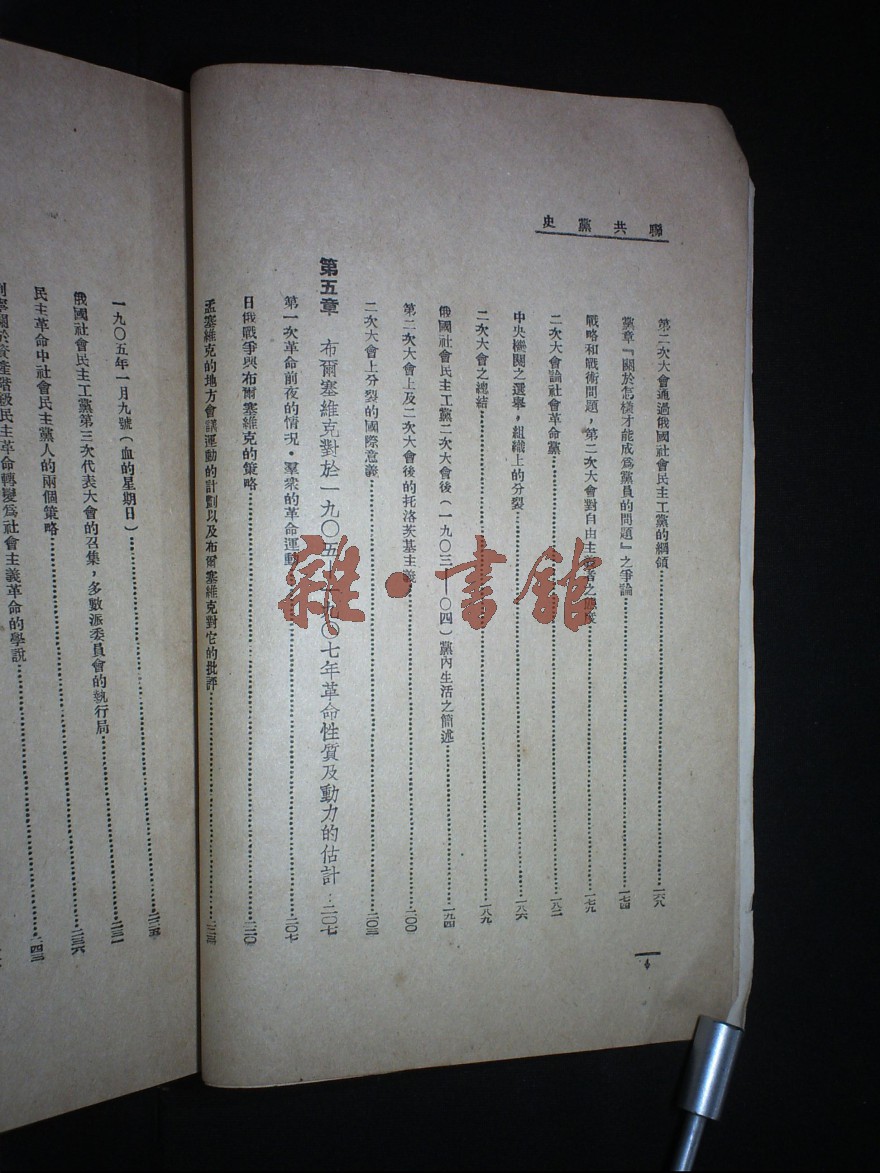 聯共黨史
第二次大會通過俄國社會民主工黨的綱領……一六八
黨章『關於怎樣才能成爲黨員的問題』之爭論……一七四
戰略和戰術問題，第二次大會對自由主義者之態度……一七九
二次大會論社會革命黨……一八二
中央機關之選舉，組織上的分裂……一八六
二次大會之總結……一八九
俄國社會民主工黨二次大會後（一九〇三—〇四）黨內生活之簡述……一九四
第二次大會上及二次大會後的托洛茨基主義……二〇〇
二次大會上分裂的國際意義……二〇三
第五章 布爾塞維克對於一九〇五—一九〇七年革命性質及動力的估計…二〇七
第一次革命前夜的情況·羣衆的革命運動……二〇七
日俄戰爭與布爾塞維克的策略……二二〇
孟塞維克的地方會議運動的計劃以及布爾塞維克對它的批評
一九〇五年一月九號（血的星期日）……二二五
俄國社會民主工黨第三次代表大會的召集，多數派委員會的執行局……二三一
民主革命中社會民主黨人的兩個策略……二三六
列寧關於資產階級民主革命轉變爲社會主義革命的學說……二四三
雜·書館